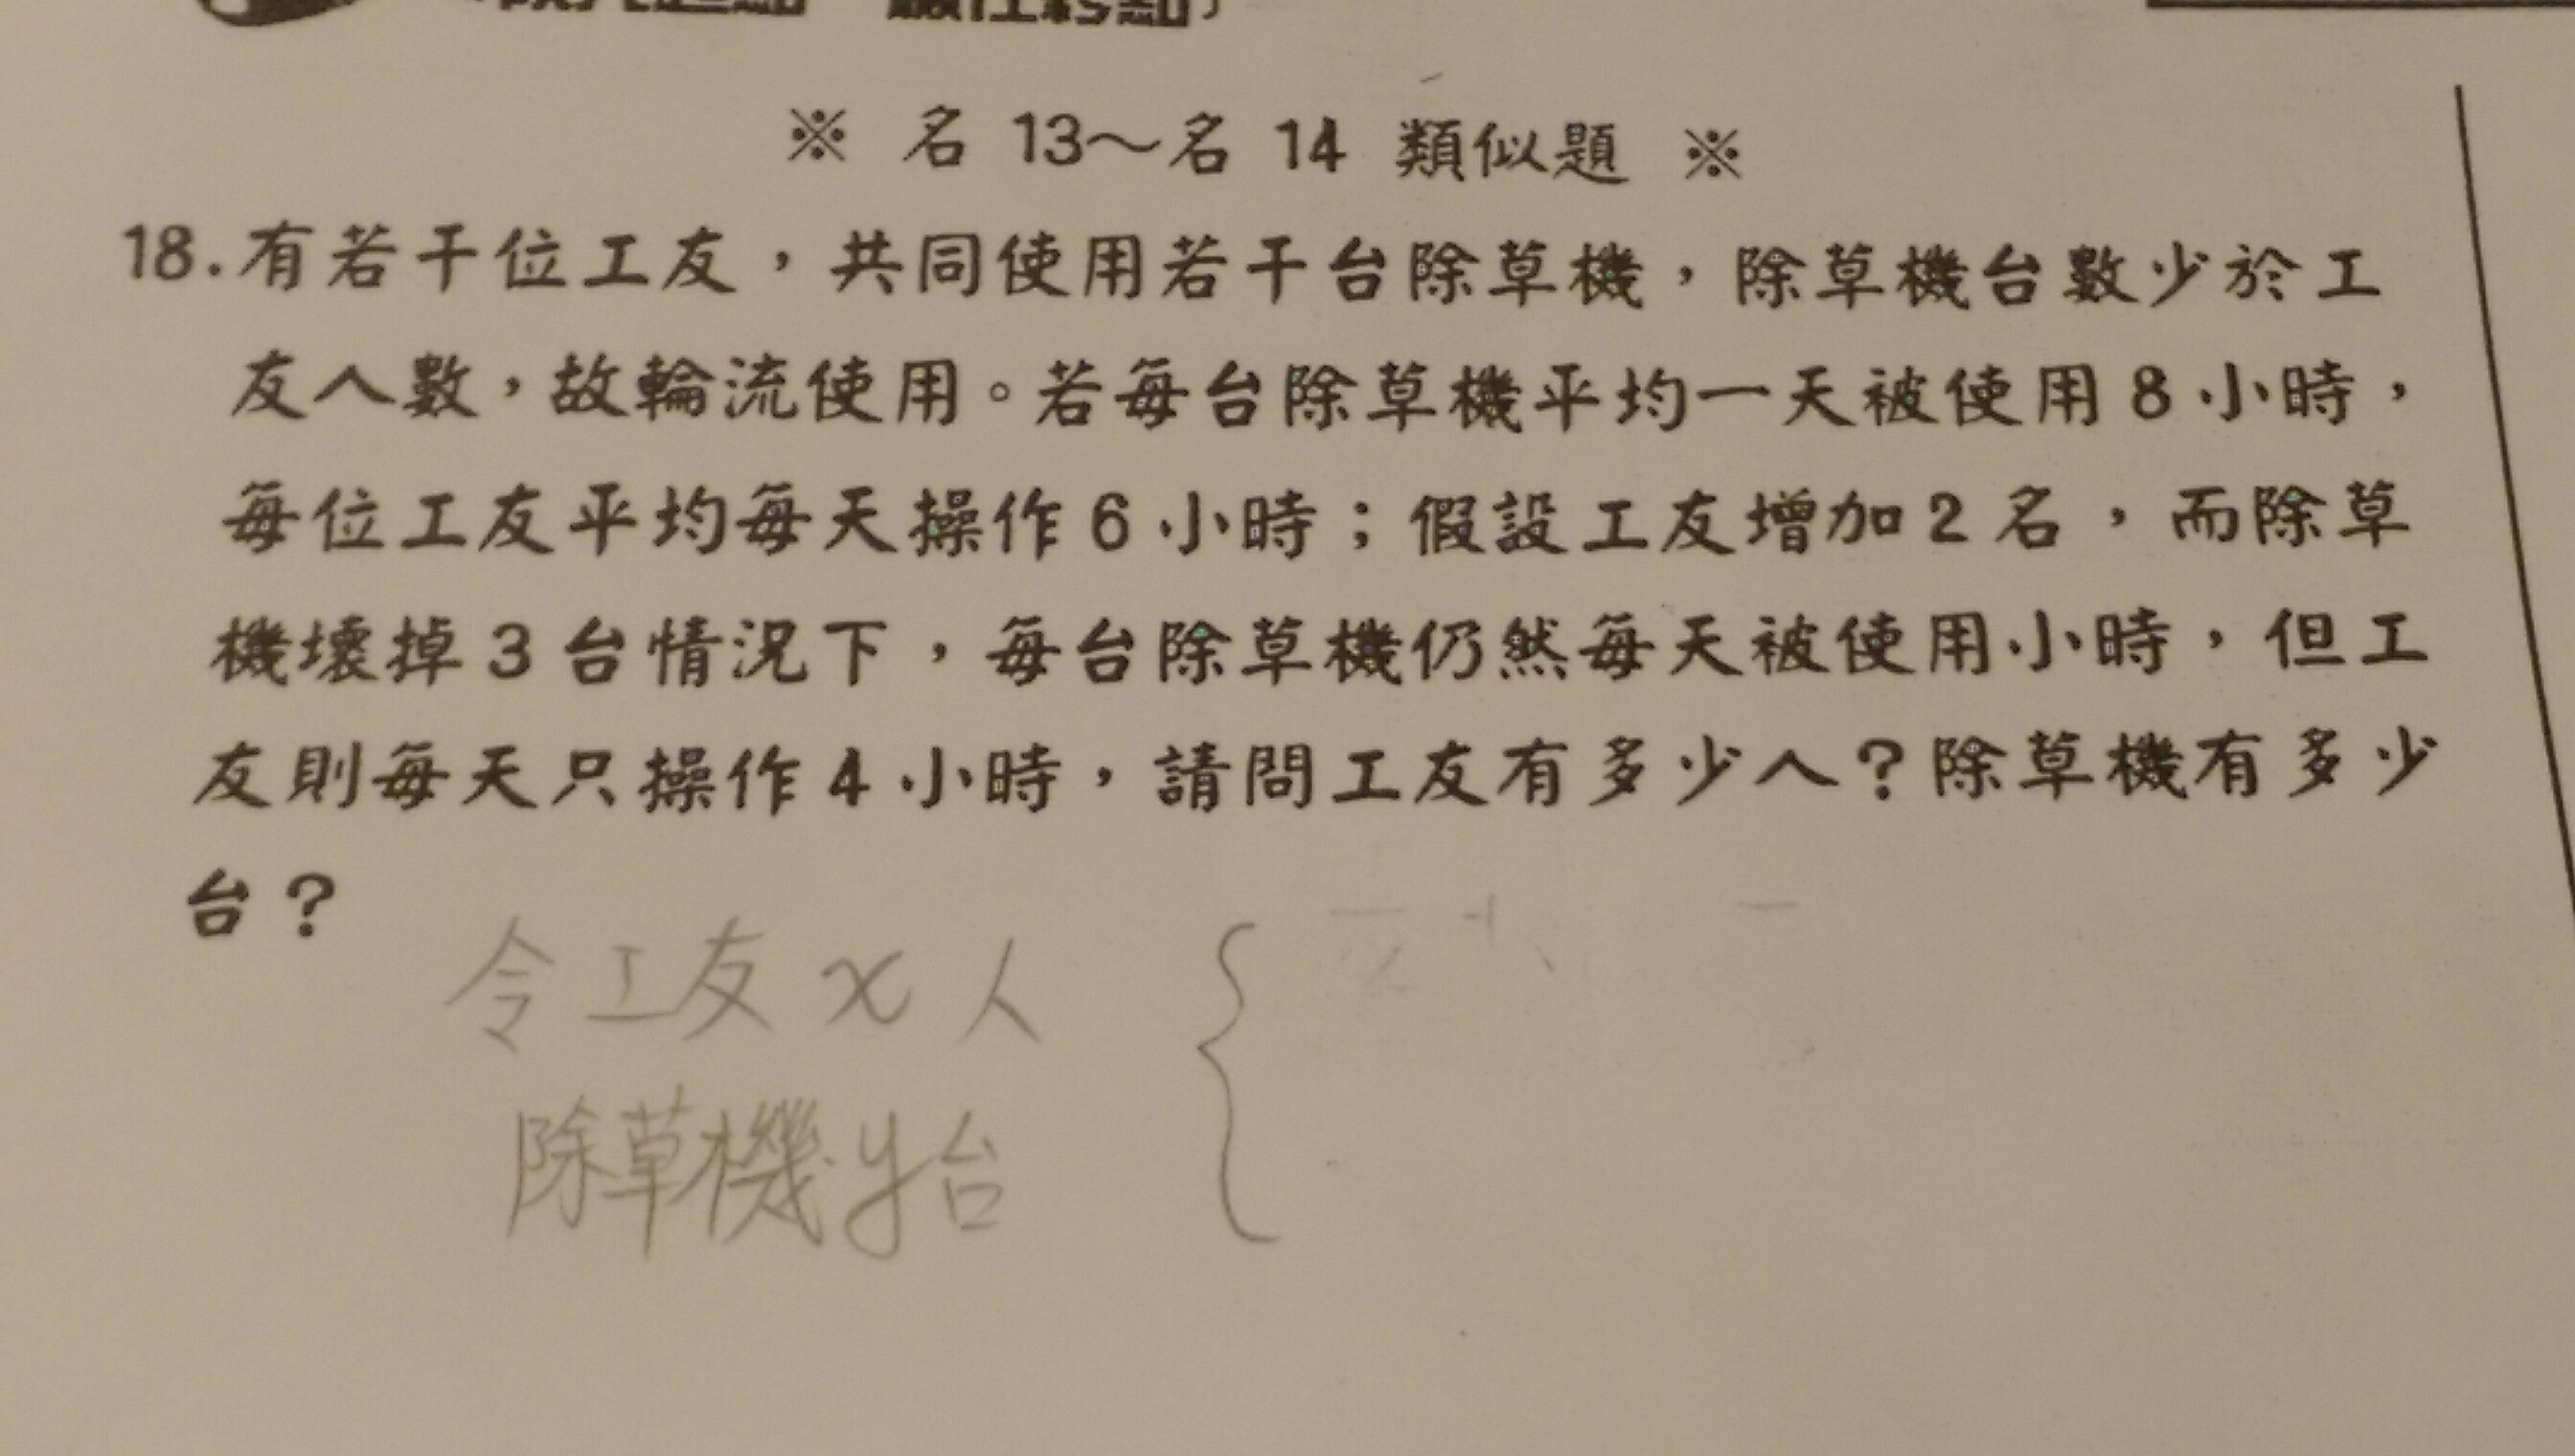 ※ 名 13～名 14 類似題 ※
18.有若干位工友，共同使用若干台除草機，除草機台數少於工
友人數，故輪流使用。若每台除草機平均一天被使用8小時，
每位工友平均每天操作6小時；假設工友增加2名，而除草
機壞掉3台情況下，每台除草機仍然每天被使用小時，但工
友則每天只操作4小時，請問工友有多少人？除草機有多少
台？
令工友x人
除草機y台